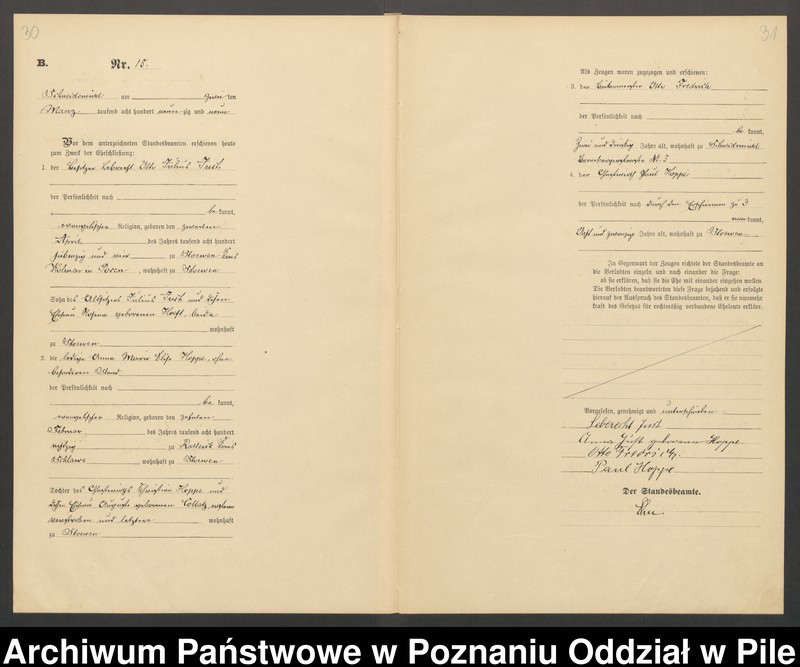 30
B.
Nr. 15.
Schneidemühl am ten
Maerz tausend acht hundert neun zig und neun
Vor dem unterzeichneten Standesbeamten erschienen heute
zum Zweck der Eheschließung:
1. der Besitzer Lebrecht Otto Julius Just
der Persönlichkeit nach
be kannt,
evangelischer Religion, geboren den zweiten
April des Jahres tausend acht hundert
siebenzig und vier zu Stoewen Kreis
Kolmar in Posen, wohnhaft zu Stoewen
Sohn des Altsitzers Julius Just und dessen
Ehefrau geborenen beide
wohnhaft
zu Stoewen
2. die ledige Anna Marie Elise Hoppe, ohne
besonderen Stand
der Persönlichkeit nach
be kannt,
evangelischer Religion, geboren den zehnten
Februar des Jahres tausend acht hundert
achtzig zu Kreis
Schlawe, wohnhaft zu Stoewen
Tochter des Gastwirths Christian Hoppe und
dessen Ehefrau Auguste geborenen Collatz, ersterer
verstorben und letztere wohnhaft
zu Stoewen
31
Als Zeugen waren zugezogen und erschienen:
3. der Bäckermeister Otto Fredrich
der Persönlichkeit nach
be kannt,
zwei und dreißig Jahre alt, wohnhaft zu Schneidemühl
Brombergerstraße Nr. 3
4. der Gastwirth Paul Hoppe
der Persönlichkeit nach durch den Erschienenen zu 3
anerkannt,
acht und zwanzig Jahre alt, wohnhaft zu Stoewen
In Gegenwart der Zeugen richtete der Standesbeamte an
die Verlobten einzeln und nach einander die Frage:
ob sie erklären, daß sie die Ehe mit einander eingehen wollen.
Die Verlobten beantworteten diese Frage bejahend und erfolgte
hierauf der Ausspruch des Standesbeamten, daß er sie nunmehr
kraft des Gesetzes für rechtmäßig verbundene Eheleute erkläre.
Vorgelesen, genehmigt und unterschrieben
Leberecht Just
Anna Just geborene Hoppe.
Otto Fredrich.
Paul Hoppe
Der Standesbeamte.
Archiwum Państwowe w Poznaniu Oddział w Pile